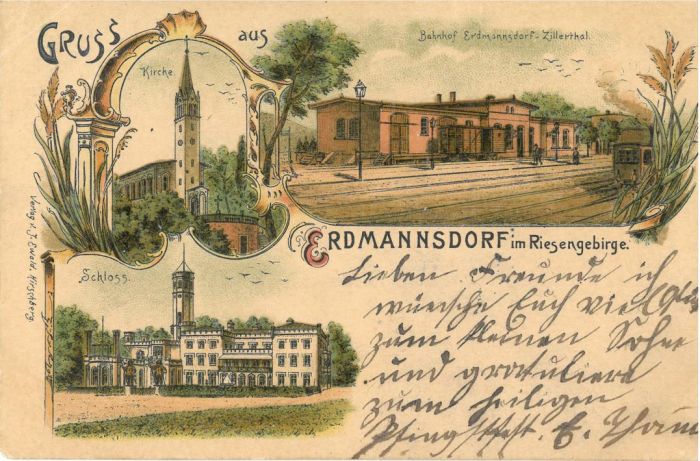 Gruss aus
Kirche.
Bahnhof Erdmannsdorf-Zillerthal.
Erdmannsdorf im Riesengebirge.
Schloss.
Verlag v. J. Ewald, Hirschberg.
Lieben Freunde ich
wünsche Euch viel Glück
zum kleinen Sohne
und gratuliere
zum heiligen
Pfingstfest. E. Tham